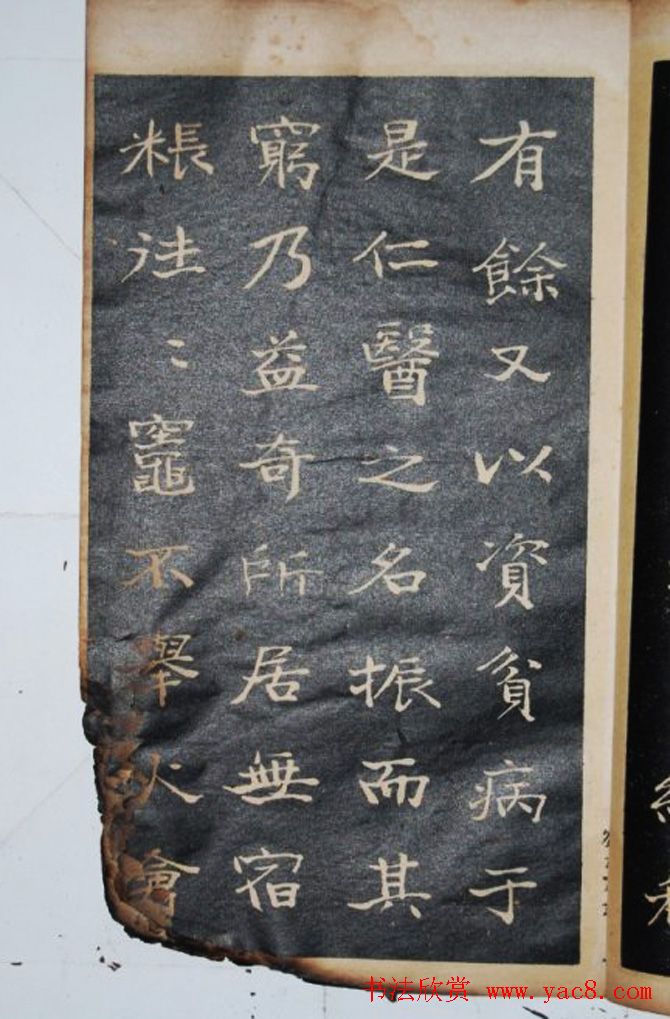 有餘又以資貧病于
是仁醫之名振而其
窮乃益奇所居無宿
粻往〻竈不舉火會
书法欣赏 www.yac8.com